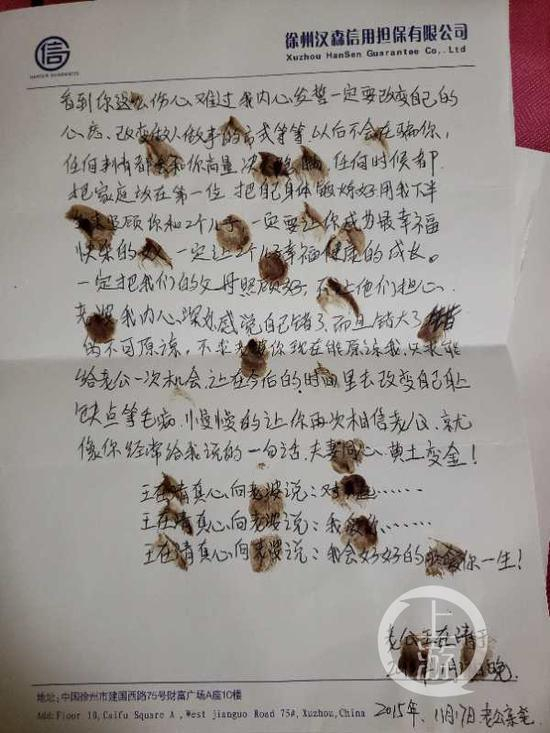 信
HANSEN GUARANTEE
徐州汉森信用担保有限公司
Xuzhou HanSen Guarantee Co,.Ltd
看到你这么伤心、难过我内心发誓一定要改变自己的
心态、改变做人做事的方式等等.以后不会在骗你,
任何事情都会和你商量 任何时候都
把家庭放在第一位 把自己身体锻炼好用我下半
照顾你和2个儿子 一定要让你成为最幸福
快乐的女人 一定让2个儿子幸福健康的成长。
一定把我们的父母照顾好, 不让他们担心.
老婆我内心深处感觉自己错了而且错大了
的不可原谅, 不求老婆你现在能原谅我.只求能
给老公一次机会.让在今后的时间里去改变自己身上
缺点等毛病.慢慢的让你再次相信老公.就
像你经常给我说的一句话.夫妻同心、黄土变金!
王在清真心向老婆说:对不起......
王在清真心向老婆说:我爱你......
王在清真心向老婆说:我会好好的 你一生!
老公王在清于
晚
2015年、11月17日老公亲笔
上游
地址:中国徐州市建国西路75号财富广场A座10楼
Add:Floor 10,Caifu Square A ,West jianguo Road 75#,Xuzhou,China